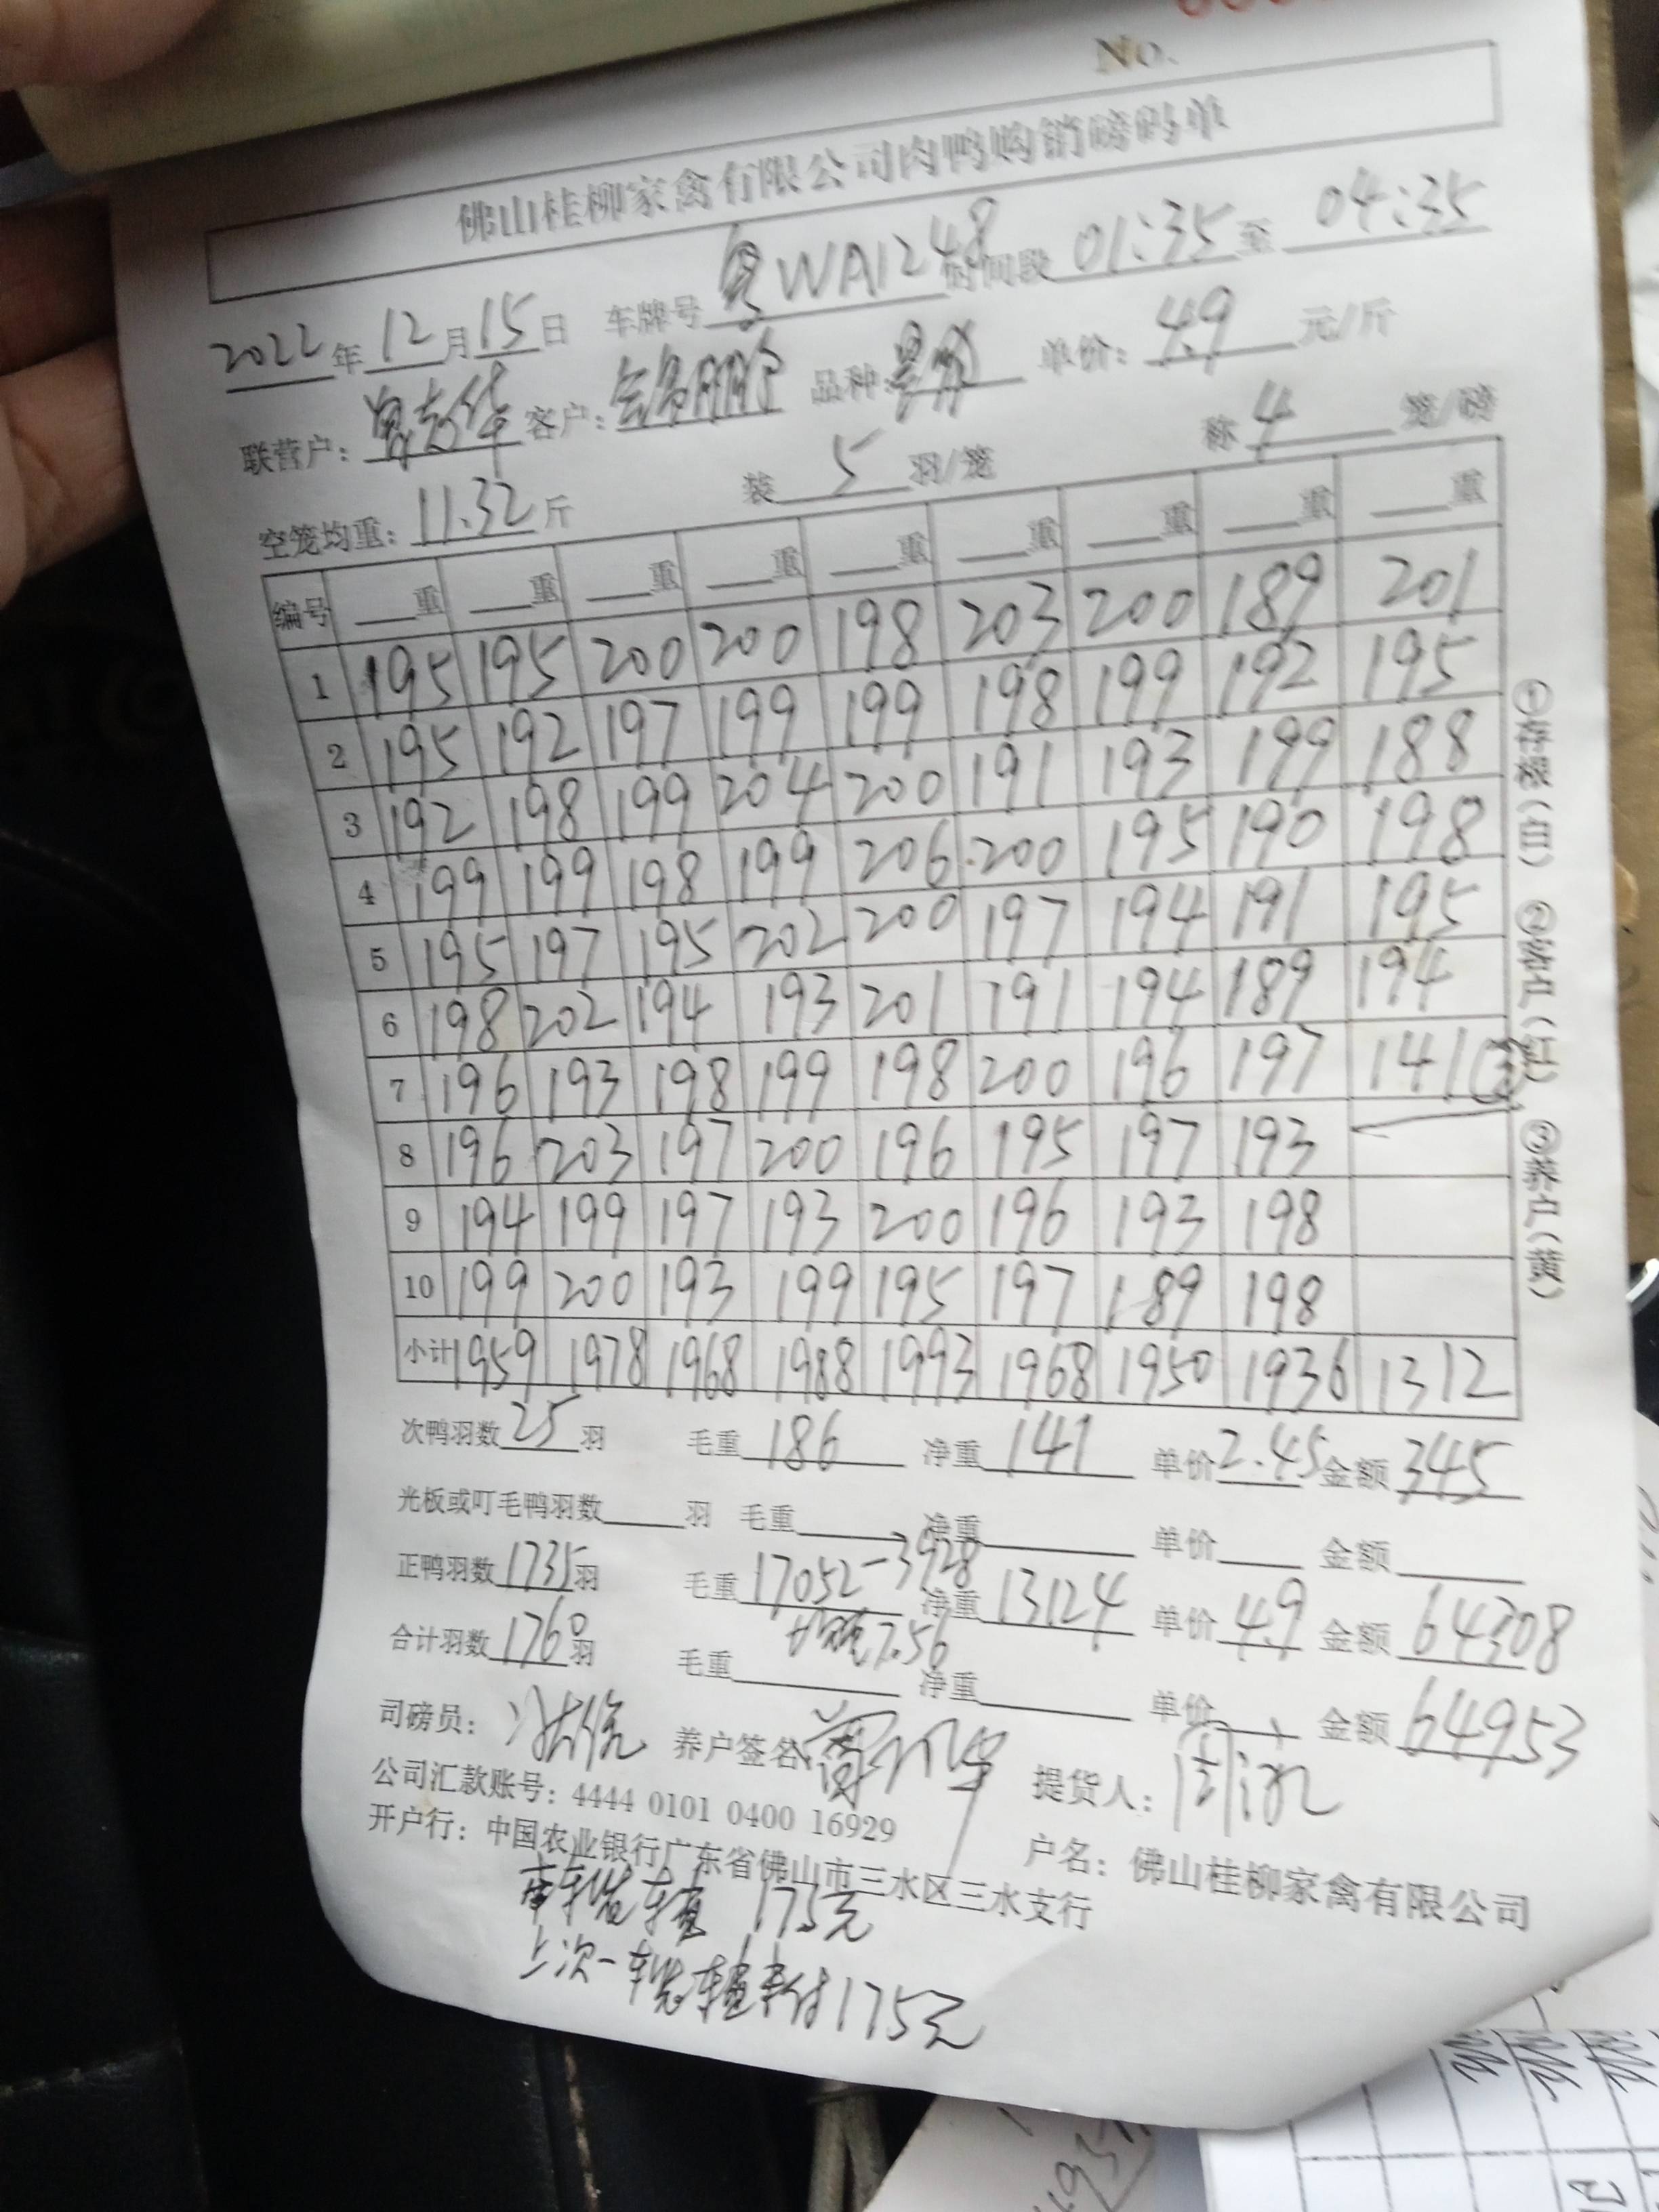 No.
佛山桂柳家禽有限公司肉鸭购销磅码单
2022年12月15日 车牌号粤WA1248时间段01:35至04:35
联营户: 客户: 品种: 单价:4.9元/斤
空笼均重:11.32斤 装5羽/笼 称4笼/磅
编号 重 重 重 重 重 重 重 重 重
1 195 195 200 200 198 203 200 189 201
2 195 192 197 199 199 198 199 192 195
3 192 198 199 204 200 191 193 199 188
4 199 199 198 199 206 200 195 190 198
5 195 197 195 202 200 197 194 191 195
6 198 202 194 193 201 191 194 189 194
7 196 193 198 199 198 200 196 197 141(3)
8 196 203 197 200 196 195 197 193
9 194 199 197 193 200 196 193 198
10 199 200 193 199 195 197 189 198
小计 1959 1978 1968 1988 1993 1968 1950 1936 1312
次鸭羽数25羽 毛重186 净重141 单价2.45金额345
光板或叮毛鸭羽数 羽 毛重 净重 单价 金额
正鸭羽数1735羽 毛重17052-3928 净重13124 单价4.9 金额64308
7.56
合计羽数1760羽 毛重 净重 单价 金额64953
司磅员: 养户签名: 提货人:
公司汇款账号: 4444 0101 0400 16929 户名: 佛山桂柳家禽有限公司
开户行: 中国农业银行广东省佛山市三水区三水支行
175元
上次一车 175元
①存根(白) ②客户(红) ③养户(黄)